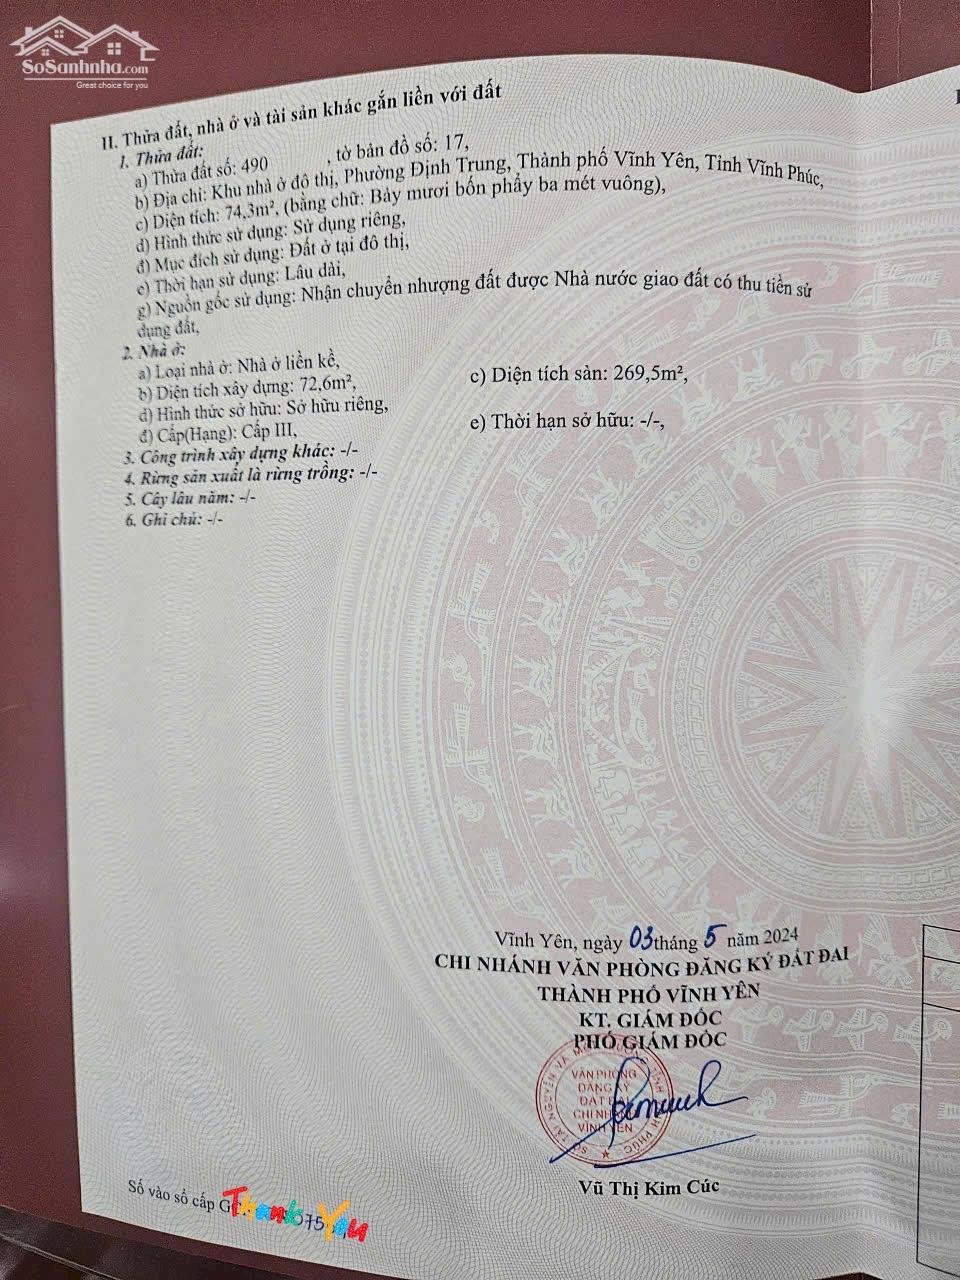 SoSanhnha.com
Great choice for you
II. Thửa đất, nhà ở và tài sản khác gắn liền với đất
1. Thửa đất:
a) Thửa đất số: 490 , tờ bản đồ số: 17,
b) Địa chỉ: Khu nhà ở đô thị, Phường Định Trung, Thành phố Vĩnh Yên, Tỉnh Vĩnh Phúc,
c) Diện tích: 74,3m², (bằng chữ: Bảy mươi bốn phẩy ba mét vuông),
d) Hình thức sử dụng: Sử dụng riêng,
đ) Mục đích sử dụng: Đất ở tại đô thị,
e) Thời hạn sử dụng: Lâu dài,
g) Nguồn gốc sử dụng: Nhận chuyển nhượng đất được Nhà nước giao đất có thu tiền sử
dụng đất,
2. Nhà ở:
a) Loại nhà ở: Nhà ở liền kề,
b) Diện tích xây dựng: 72,6m², c) Diện tích sàn: 269,5m²,
d) Hình thức sở hữu: Sở hữu riêng,
đ) Cấp(Hạng): Cấp III, e) Thời hạn sở hữu: -/-,
3. Công trình xây dựng khác: -/-
4. Rừng sản xuất là rừng trồng: -/-
5. Cây lâu năm: -/-
6. Ghi chú: -/-
Vĩnh Yên, ngày 03 tháng 5 năm 2024
CHI NHÁNH VĂN PHÒNG ĐĂNG KÝ ĐẤT ĐAI
THÀNH PHỐ VĨNH YÊN
KT. GIÁM ĐỐC
PHÓ GIÁM ĐỐC
VĂN PHÒNG
ĐĂNG KÝ
ĐẤT ĐAI
CHI NHÁNH
VĨNH YÊN
Vũ Thị Kim Cúc
Số vào sổ cấp
Thank You